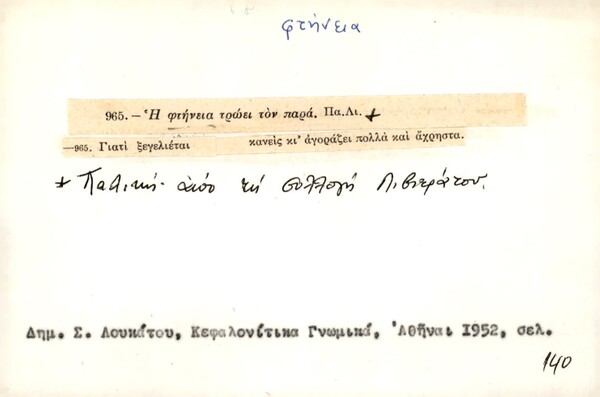 φτήνεια
965.—Ἡ φτήνεια τρώει τὸν παρά. Πα.Λι. +
—965. Γιατὶ ξεγελιέται κανεὶς κι' ἀγοράζει πολλὰ καὶ ἄχρηστα.
+ Παλικῆς· ἀπὸ τὴ συλλογὴ Λιβιεράτου.
Δημ. Σ. Λουκάτου, Κεφαλονίτικα Γνωμικά, Ἀθῆναι 1952, σελ.
140